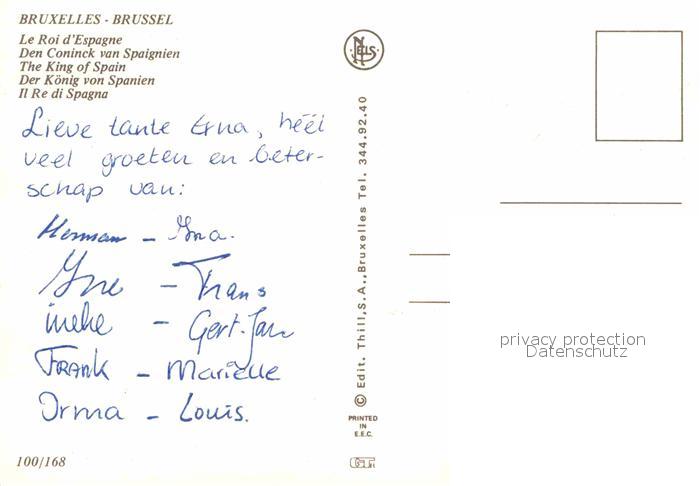 BRUXELLES - BRUSSEL
Le Roi d'Espagne
Den Coninck van Spaignien
The King of Spain
Der König von Spanien
Il Re di Spagna
Lieve tante Erna, héél
veel groeten en beter-
schap van:
Herman - Ina.
Yne - Frans
ineke - Gert-Jan
FRANK - Mariëlle
Irma - Louis.
100/168
NELS
© Edit. Thill, S.A., Bruxelles Tel. 344.92.40
PRINTED
IN
E.E.C.
privacy protection
Datenschutz